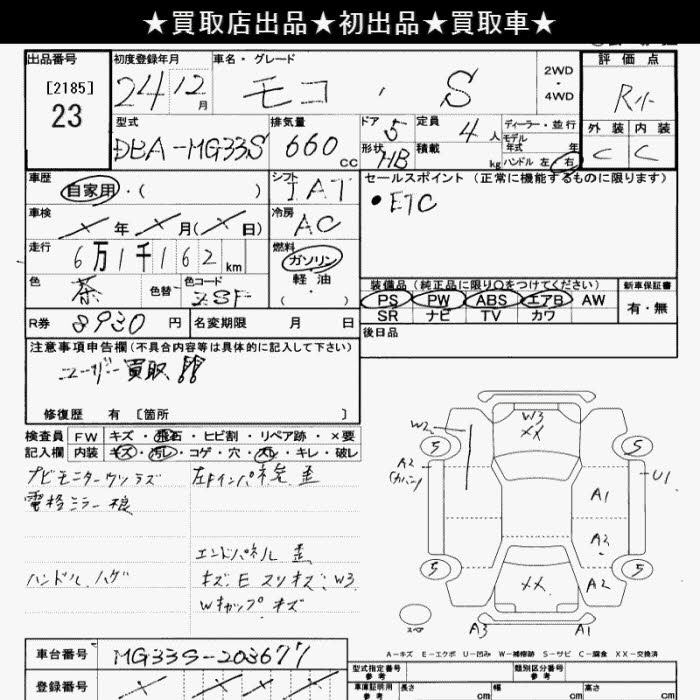 ★買取店出品★初出品★買取車★
出品番号
[2185]
23
初度登録年月
24 12月
車名・グレード
モコ ・ S
2WD
・
4WD
評価点
R小
外装 内装
C C
型式
DBA-MG33S
排気量
660 cc
ドア 5
形状 HB
定員 4人
積載 kg
ディーラー・並行
モデル
年式 年
ハンドル 左・右
車歴
自家用・( )
シフト
IAT
セールスポイント(正常に機能するものに限ります)
●ETC
車検
年 月( 日)
冷房
AC
走行
6万1千162km
燃料
ガソリン
・
軽油
色
茶
色替
色コード
装備品(純正品に限り○をつけてください)
PS PW ABS エアB AW
SR ナビ TV カワ
新車保証書
有・無
R券 8930 円
名変期限 月 日
後日品
注意事項申告欄(不具合内容等は具体的に記入して下さい)
ユーザー買取!!
修復歴 有 [箇所 ]
検査員 FW キズ・飛石・ヒビ割・リペア跡・×要
記入欄 内装 キズ・汚レ・コゲ・穴・スレ・キレ・破レ
ナビモニターウツラズ
電格ミラー 根
ハンドル ハゲ
左Fインパネ先 歪
エンドパネル 歪
キズ、E スリキズ、W3
Wキャップ キズ
W3
XX
W2
5
5
A2
(カバン)
U1
A1
A2
5
5
XX
A2
スペア
A3
A1
A-キズ E-エクボ U-凹み W-補修跡 S-サビ C-腐食 XX-交換済
車台番号 MG33S-203677
登録番号
型式指定番号
参考
類別区分番号
参考
車庫証明用
参考
長さ cm
幅 cm
高さ cm